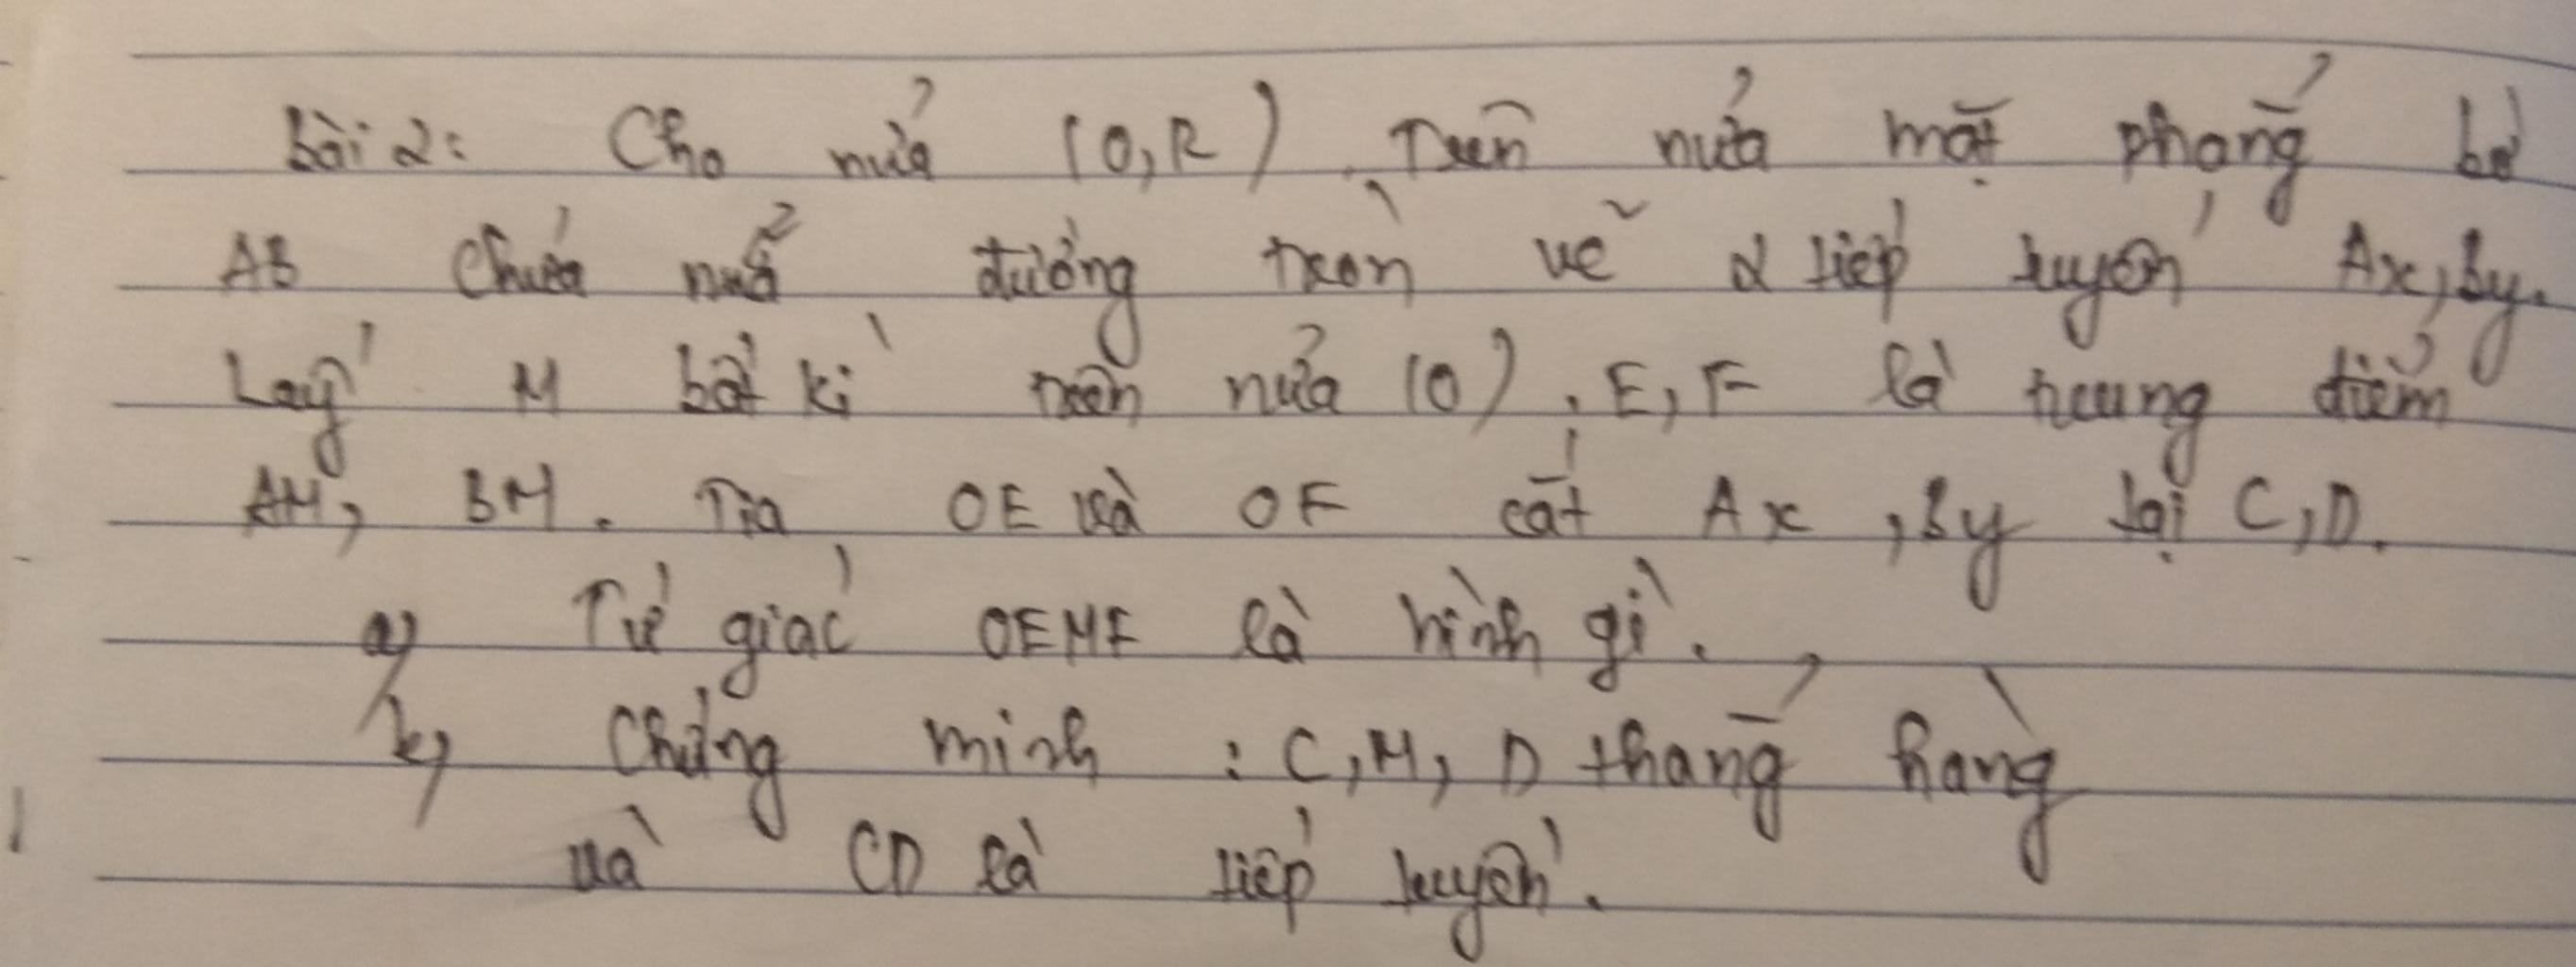 Bài 2: Cho nửa (O,R). Trên nửa mặt phẳng bờ
AB chứa nửa đường tròn vẽ 2 tiếp tuyến Ax, By.
Lấy M bất kì trên nửa (O). E, F là trung điểm
AM, BM. Tia OE và OF cắt Ax, By tại C, D.
a) Tứ giác OEMF là hình gì.
b) Chứng minh: C, M, D thẳng hàng
và CD là tiếp tuyến.